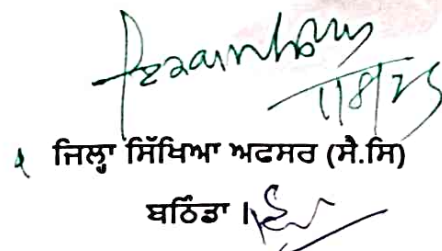 11/8/25
ਜਿਲ੍ਹਾ ਸਿੱਖਿਆ ਅਫਸਰ (ਸੈ.ਸਿ)
ਬਠਿੰਡਾ ।